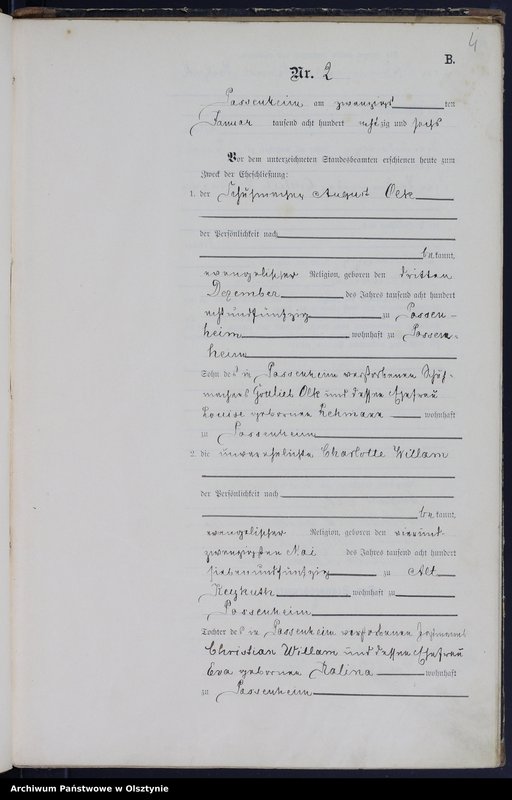 4
B.
Nr. 2
Passenheim am zwanzigsten
Januar tausend acht hundert achtzig und sechs
Vor dem unterzeichneten Standesbeamten erschienen heute zum
Zweck der Eheschließung:
1. der Schuhmacher August Olk
der Persönlichkeit nach
bekannt,
evangelischer Religion, geboren den dritten
Dezember des Jahres tausend acht hundert
achtundfünfzig zu Passen-
heim wohnhaft zu Passen-
heim
Sohn des in Passenheim verstorbenen Schuh-
machers Gottlieb Olk und dessen Ehefrau
Louise geborenen Lehmann wohnhaft
zu Passenheim
2. die unverehelichte Charlotte Willam
der Persönlichkeit nach
bekannt,
evangelischer Religion, geboren den vierund-
zwanzigsten Mai des Jahres tausend acht hundert
siebenundfünfzig zu Alt
Keykuth wohnhaft zu
Passenheim
Tochter des in Passenheim verstorbenen
Christian Willam und dessen Ehefrau
Eva geborenen Kalina wohnhaft
zu Passenheim
Archiwum Państwowe w Olsztynie